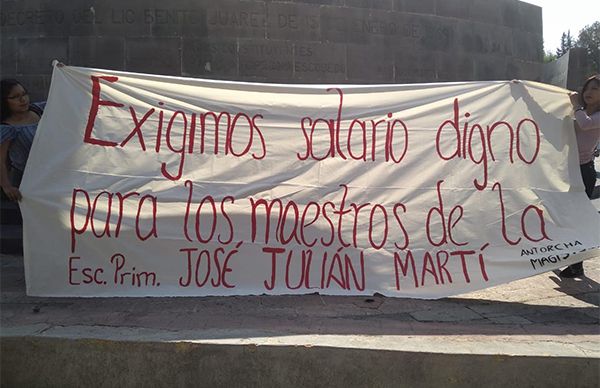 DECRETO DEL LIC BENITO JUAREZ DE 15 DE ENERO DE
Exigimos salario digno
para los maestros de la
Esc. Prim. JOSÉ JULIÁN MARTÍ
ANTORCHA